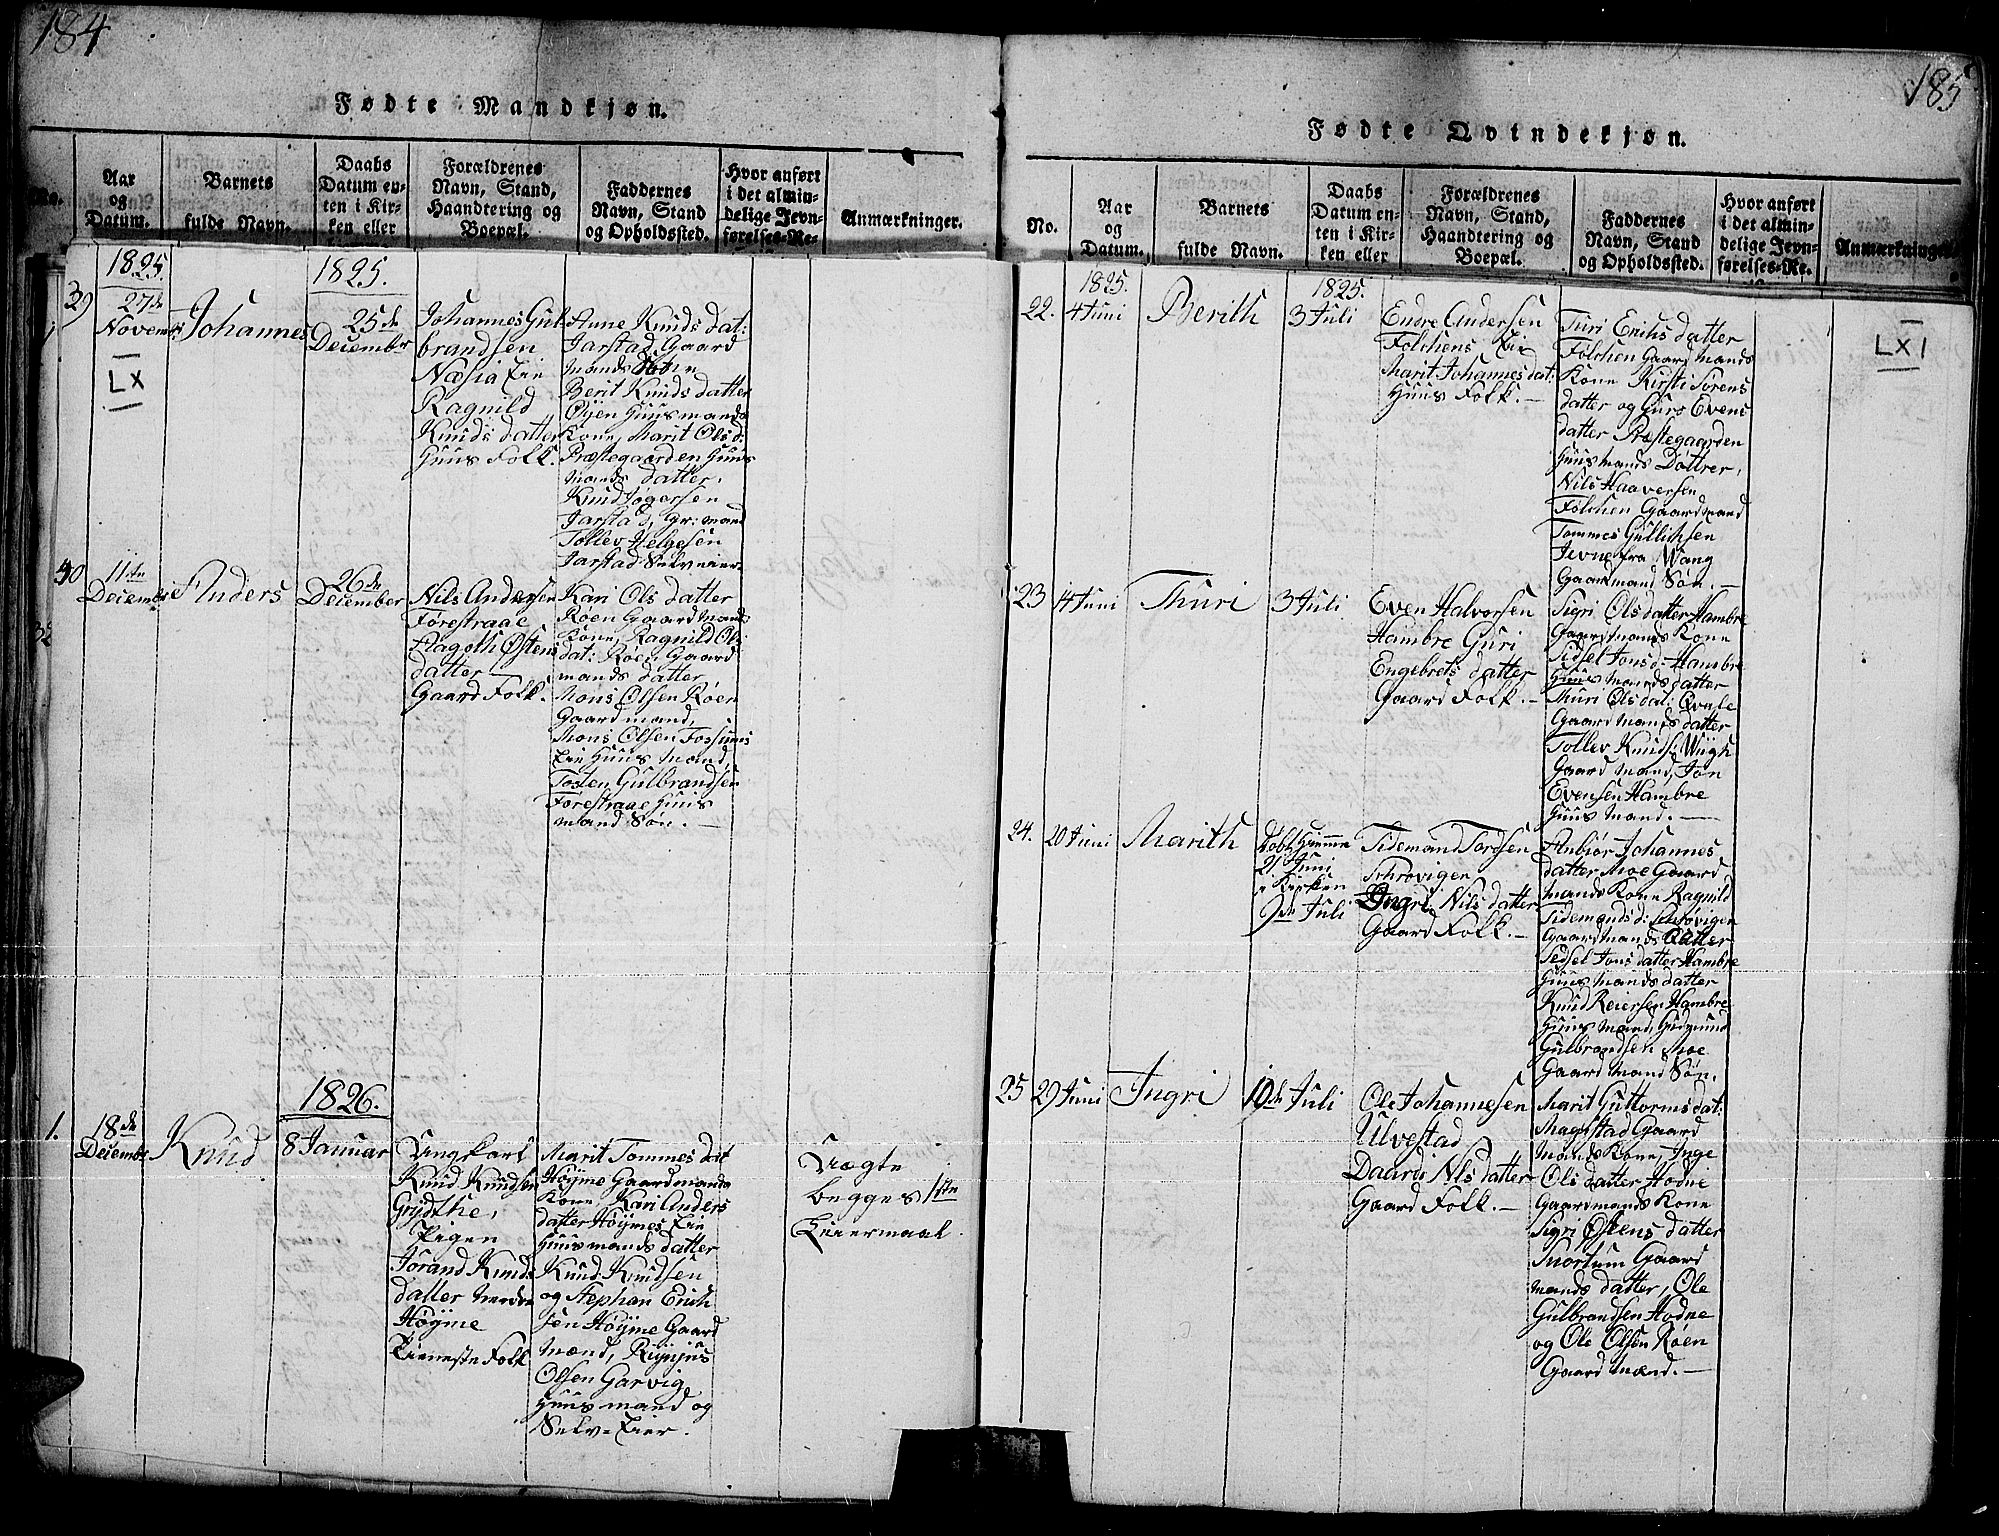 184
Fødte Mandkjøn.
No.
Aar
og
Datum.
Barnets
fulde Navn.
Daabs
Datum en-
ten i Kir-
ken eller
Forældrenes
Navn, Stand,
Haandtering og
Boepæl.
Faddernes
Navn, Stand
og Opholdssted.
Hvor anført
i det almin-
delige Jevn-
førelses-Re-
Anmærkninger.
1825.
1825.
39
27de
Novembr
LX
Johannes
25de
Decembr
Johannes Gul-
brandsen
Næsia Eie
Ragnild
Knuds datter
Huus Folk.
Anne Knuds dat:
Jarstad Gaard
mands Kone
Berit Knuds datter
Øyen Huusmands
Kone, Marit Ols d:
Præstegaarden Huus
mands datter.
Knud Jøgersen
Jarstad, Gr: mand
Tollev Helgesen
Jarstad Selveier.
40
11te
Decembr
Anders
26de
December
Nils Andersen
Førestraae
Aagoth Østens
datter
Gaard Folk.
Kari Ols datter
Røen Gaardmands
Kone, Ragnild Ols
dat: Røen Gaard
mands datter
Mons Olsen Røen
Gaardmand,
Mons Olsen Fossums
Eie Huusmand,
Tosten Gulbrandsen
Førestraae Huus
mand Søn. —
1826.
1.
18de
Decembr
Knud
8 Januar
Ungkarl
Knud Knudsen
Grydthe,
Pigen
Jorand Knuds
datter nerdre
Høyme
Tieneste Folk
Marit Tommes dat
Høyme Gaardmands
Kone Kari Anders
datter Høymes Eie
Huusmands datter
Knud Knudsen
og Stephan Erich
sen Høyme Gaard
mænd,
Olsen Garvig
Huusmand og
Selv-Eier.
Uægte
begges 1ste
Leiermaal.
185
Fødte Qvindekjøn.
No.
Aar
og
Datum.
Barnets
fulde Navn.
Daabs
Datum en-
ten i Kir-
ken eller
Forældrenes
Navn, Stand,
Haandtering og
Boepæl.
Faddernes
Navn, Stand
og Opholdssted.
Hvor anført
i det almin-
delige Jevn-
førelses-Re-
Anmærkninger.
1825.
1825.
22.
4 Juni
Berith
3 Juli
Endre Andersen
Følchens Eie
Marit Johannes dat:
Huus Folk. —
Turi Erichs datter
Følchen Gaardmands
Kone Kirsti Sørens
datter og Guro Evens
datter Præstegaarden
Huusmands Døttrer,
Nils Haaversen
Følchen Gaardmand
Tommes Gullichsen
Jevne fra Wang
Gaardmand Søn. —
LXI
23
14 Juni
Thuri
3 Juli
Even Halvorsen
Hambre Guri
Engebrets datter
Gaard Folk. —
Sigri Ols datter Hambre
Gaardmands Kone
Sidsel Jons d: Hambre
Huusmands datter
Thuri Ols dat: Qvale
Gaardmands datter
Tollev Knuds: Wiigh
Gaardmand, Jon
Evensen Hambre
Huusmand. —
24.
20 Juni
Marith
Døbt Hiemme
21 Juni
i Kirken
9de Juli
Tidemand Tordsen
Schrøvigen
Ingri Nils datter
Gaard Folk. —
Anbiør Johannes
datter Moe Gaard
mands Kone Ragnild
Tidemands d: Schrøvigen
Gaardmands datter
Sidsel Jons datter Hambre
Huusmands datter
Knud Reiersen Hambre
Huusmand, Gudmund
Gulbrandsen Moe
Gaardmand Søn.
25
29 Juni
Ingri
10de Juli
Ole Johannesen
Ulvestad
Daardi Nils datter
Gaard Folk. —
Marit Guttorms dat:
Magistad Gaard
mands Kone, Inge
Ols datter Hodne
Gaardmands Kone
Sigri Østens datter
Mortum Gaard
mands datter, Ole
Gulbrandsen Hodne
og Ole Olsen Røen
Gaardmænd. —